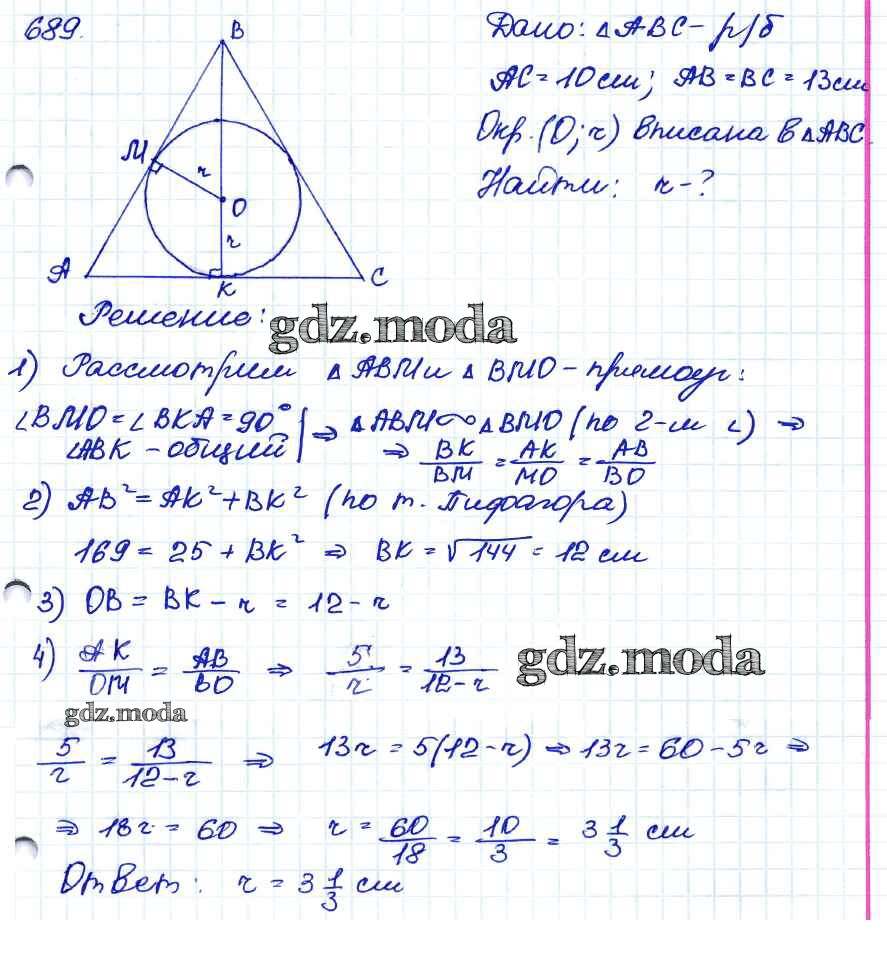 689.
Дано: △ABC - р/б
AC = 10 см; AB = BC = 13 см
Окр. (O; r) вписана в △ABC
Найти: r - ?
B
M
r
O
r
A
K
C
Решение:
gdz.moda
1) Рассмотрим △ABM и △BMO - прямоуг:
∠BMO = ∠BKA = 90° | ⇒ △ABM ∾ △BMO (по 2-м ∠) ⇒
∠ABK - общий | ⇒ BK/BM = AK/MO = AB/BO
2) AB² = AK² + BK² (по т. Пифагора)
169 = 25 + BK² ⇒ BK = √144 = 12 см
3) OB = BK - r = 12 - r
4) AK/OM = AB/BO ⇒ 5/r = 13/(12 - r)
gdz.moda
gdz.moda
5/r = 13/(12 - r) ⇒ 13r = 5(12 - r) ⇒ 13r = 60 - 5r ⇒
⇒ 18r = 60 ⇒ r = 60/18 = 10/3 = 3 1/3 см
Ответ: r = 3 1/3 см